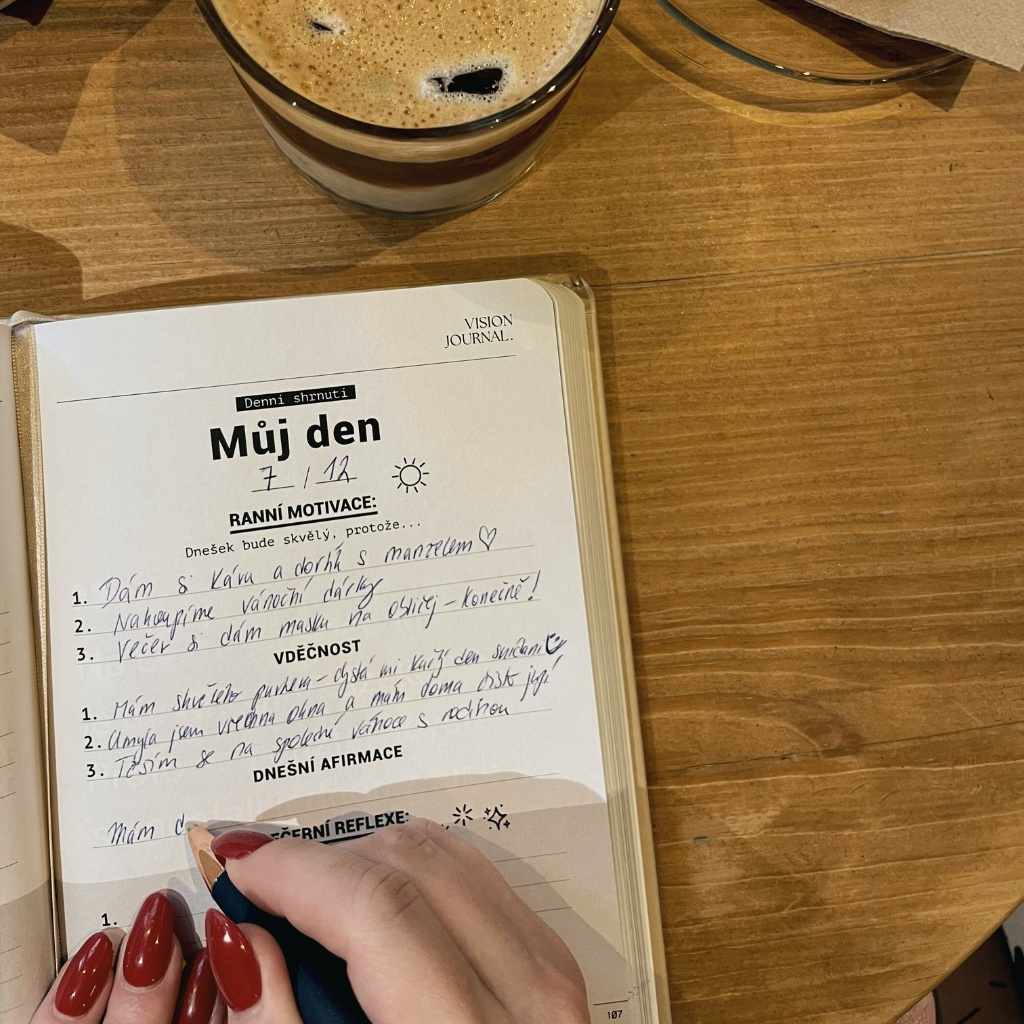 VISION
JOURNAL.
Denní shrnutí
Můj den
7 / 12
RANNÍ MOTIVACE:
Dnešek bude skvělý, protože...
1. Dám si kávu a dortík s manželem ♡
2. Nakoupíme vánoční dárky
3. Večer si dám masku na obličej - Konečně!
VDĚČNOST
1. Mám skvělého - mi každý den snídani
2. Umyla jsem všechna okna a mám doma čisto
3. Těším se na společné vánoce s rodinou
DNEŠNÍ AFIRMACE
Mám d
ČERNÍ REFLEXE:
1.
107